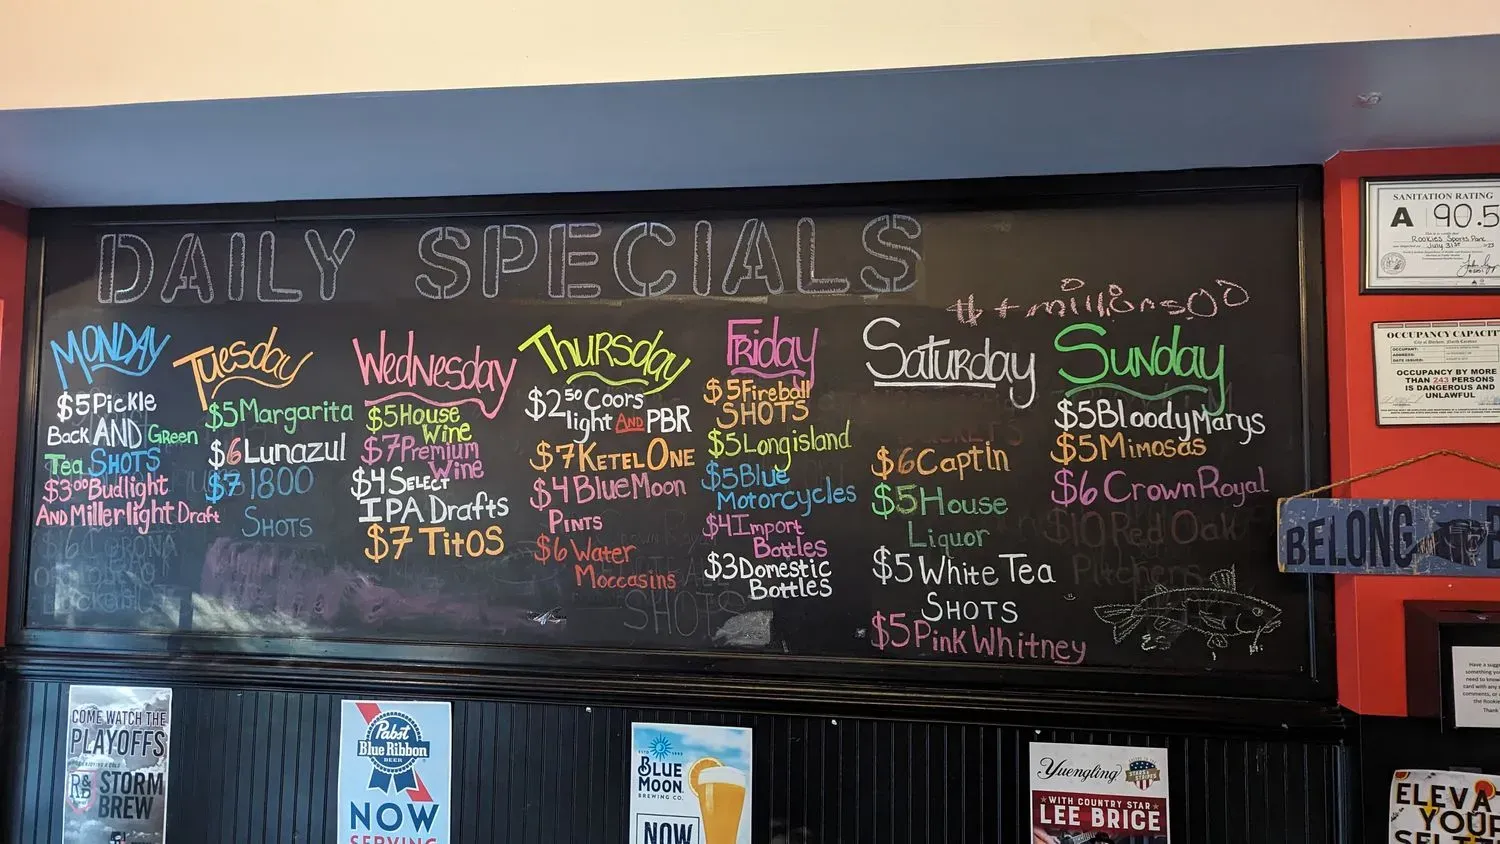 DAILY SPECIALS
MONDAY
$5 Pickle
Back AND Green
Tea SHOTS
$3⁰⁰ Budlight
AND Millerlight Draft
Tuesday
$5 Margarita
$6 Lunazul
$7 1800
SHOTS
Wednesday
$5 House
Wine
$7 Premium
Wine
$4 Select
IPA Drafts
$7 Titos
Thursday
$2⁵⁰ Coors
light AND PBR
$7 Ketel One
$4 Blue Moon
Pints
$6 Water
Moccasins
Friday
$5 Fireball
SHOTS
$5 Longisland
$5 Blue
Motorcycles
$4 Import
Bottles
$3 Domestic
Bottles
Saturday
$6 Captin
$5 House
Liquor
$5 White Tea
SHOTS
$5 Pink Whitney
Sunday
$5 Bloody Marys
$5 Mimosas
$6 Crown Royal
$10 Red Oak
Pitchers
SANITATION RATING
A 90.5
Rookies Sports
July 31st
OCCUPANCY CAPACITY
OCCUPANCY BY MORE
THAN 243 PERSONS
IS DANGEROUS AND
UNLAWFUL
BELONG
COME WATCH THE
PLAYOFFS
R&
STORM
BREW
Pabst
Blue Ribbon
BEER
NOW
SERVING
BLUE
MOON
BREWING CO.
NOW
Yuengling
WITH COUNTRY STAR
LEE BRICE
ELEVA
YOUR